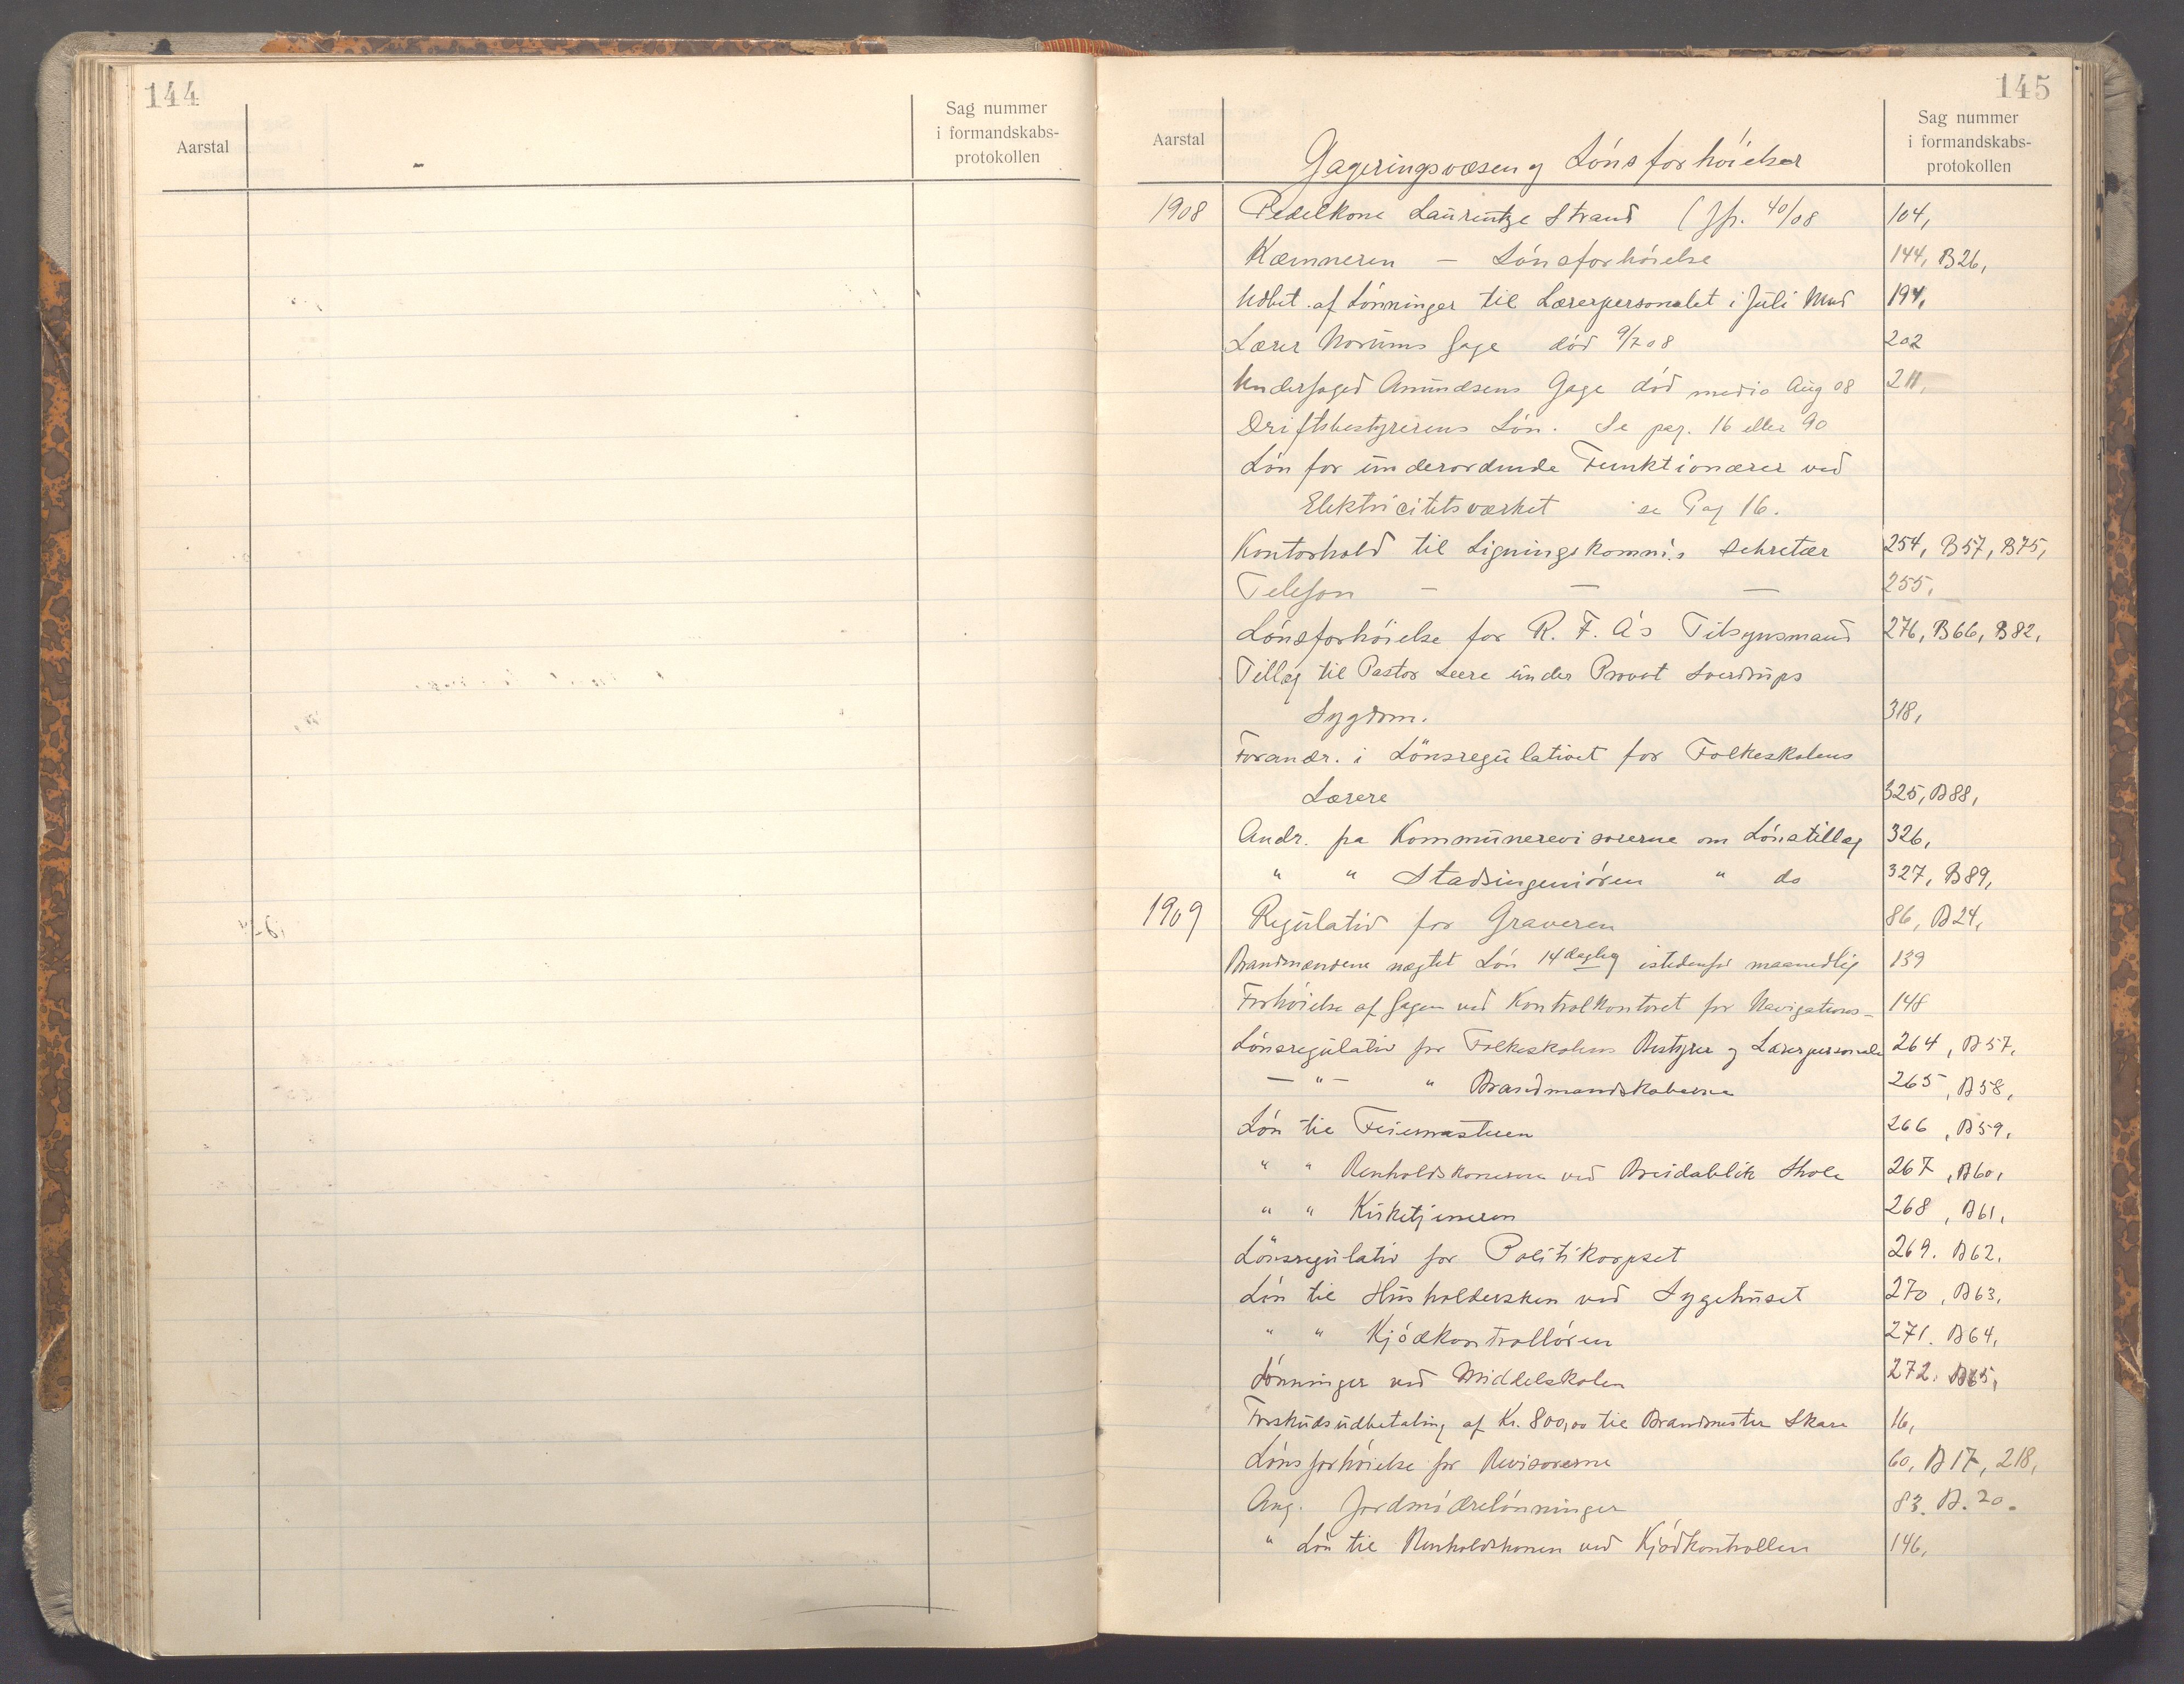 144
Aarstal
Sag nummer
i formandskabs-
protokollen
145
Aarstal
Gageringsvæsen og Lönsforhöielser
Sag nummer
i formandskabs-
protokollen
1908 Pedelkone Laurentze Strand (Jfr. 40/08 104,
Kæmneren – Lönsforhöielse 144, B26,
Udbet. af Lönninger til Lærerpersonalet i Juli Mnd 194,
Lærer Norums Gage död 9/7 08 202
Underfoged Amundsens Gage död medio Aug 08 211,
Driftsbestyrerens Lön. Se pag. 16 eller 90
Lön for underordnede Funktionærer ved
Elektricitetsværket se Pag 16.
Kontorhold til Ligningskommis Sekretær 254, B57, B75,
Telefon – – – 255,
Lönsforhöielse for R. F. A's Tilsynsmand 276, B66, B82,
Tillæg til Pastor Leere under Provst Sverdrups
Sygdom. 318,
Forandr. i Lönsregulativet for Folkeskolens
Lærere 325, B88,
Andr. fra Kommunerevisorerne om Lönstillæg 326,
" " Stadsingeniören " do 327, B89,
1909 Regulativ for Graveren 86, B24,
Brandmændene nægtet Lön 14 daglig istedenfor maanedlig 139
Forhöielse af Gagen ved Kontrolkontoret for Navigations- 148
Lönsregulativ for Folkeskolens Bestyrer og Lærerpersonale 264, B57,
– " – " Brandmandskaberne 265, B58,
Lön til Feiermesteren 266, B59,
" " Renholdskonerne ved Breidablik Skole 267, B60,
" " Kirketjeneren 268, B61,
Lönsregulativ for Politikorpset 269. B62.
Lön til Husholdersken ved Sygehuset 270, B63,
" " Kjödkontrollören 271. B64,
Lönninger ved Middelskolen 272. B65,
Forskudsudbetaling af Kr. 800,00 til Brandmester Skare 16,
Lönsforhöielse for Revisorerne 60, B17, 218,
Ang. Jordmödrelönninger 83. B. 20.
" Lön til Renholdskonen ved Kjödkontrollen 146,